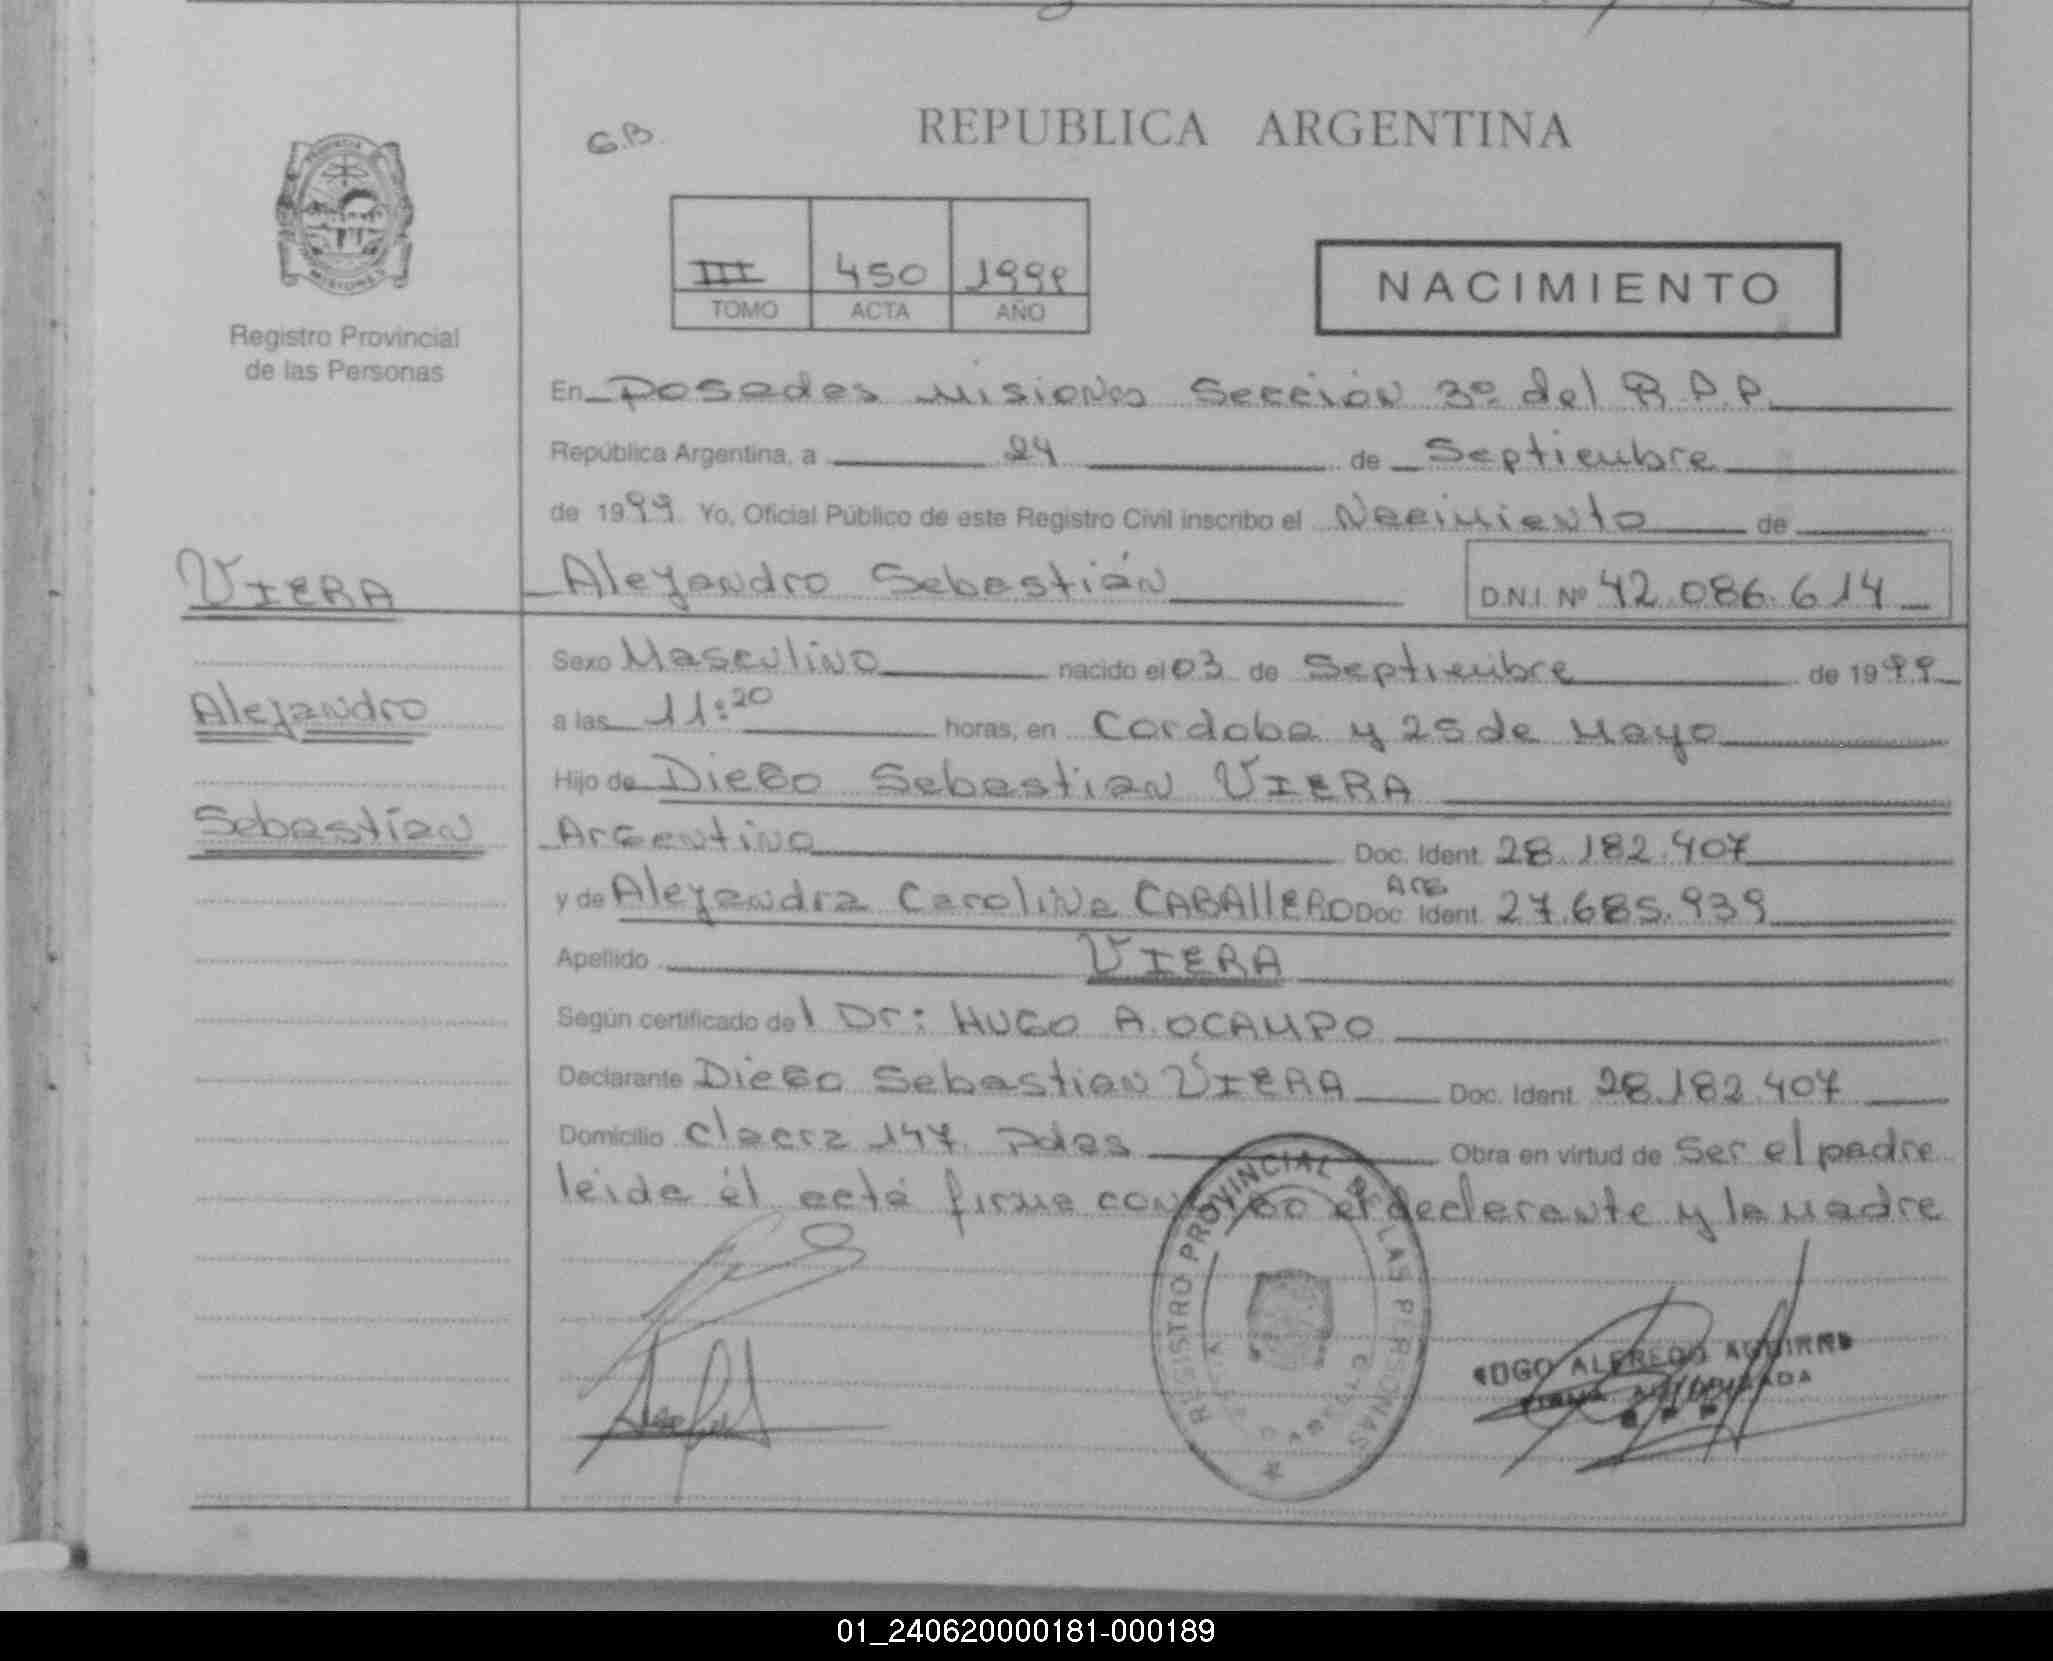 G.B.
REPUBLICA ARGENTINA
III 450 1999
TOMO ACTA AÑO
NACIMIENTO
PROVINCIA
MISIONES
Registro Provincial
de las Personas
En Posadas Misiones Sección 3º del R.P.P.
República Argentina, a 24 de Septiembre
de 1999 Yo, Oficial Público de este Registro Civil inscribo el Nacimiento de
VIERA
Alejandro Sebastián D.N.I. Nº 42.086.614
Sexo Masculino nacido el 03 de Septiembre de 1999
Alejandro
a las 11:20 horas, en Cordoba y 25 de Mayo
Hijo de Diego Sebastian VIERA
Sebastían
Argentino Doc. Ident. 28.182.407
y de Alejandra Carolina CABAllERO Arg Doc. Ident. 27.685.939
Apellido VIERA
Según certificado del Dr: HUGO A. OCAMPO
Declarante Diego Sebastian VIERA Doc. Ident. 28.182.407
Domicilio 147. Pdas Obra en virtud de ser el padre
leida él acta firma conmigo el declarante y la madre
REGISTRO PROVINCIAL DE LAS PERSONAS
ALFREDO AGUIRRE
FIRMA AUTORIZADA
01_240620000181-000189